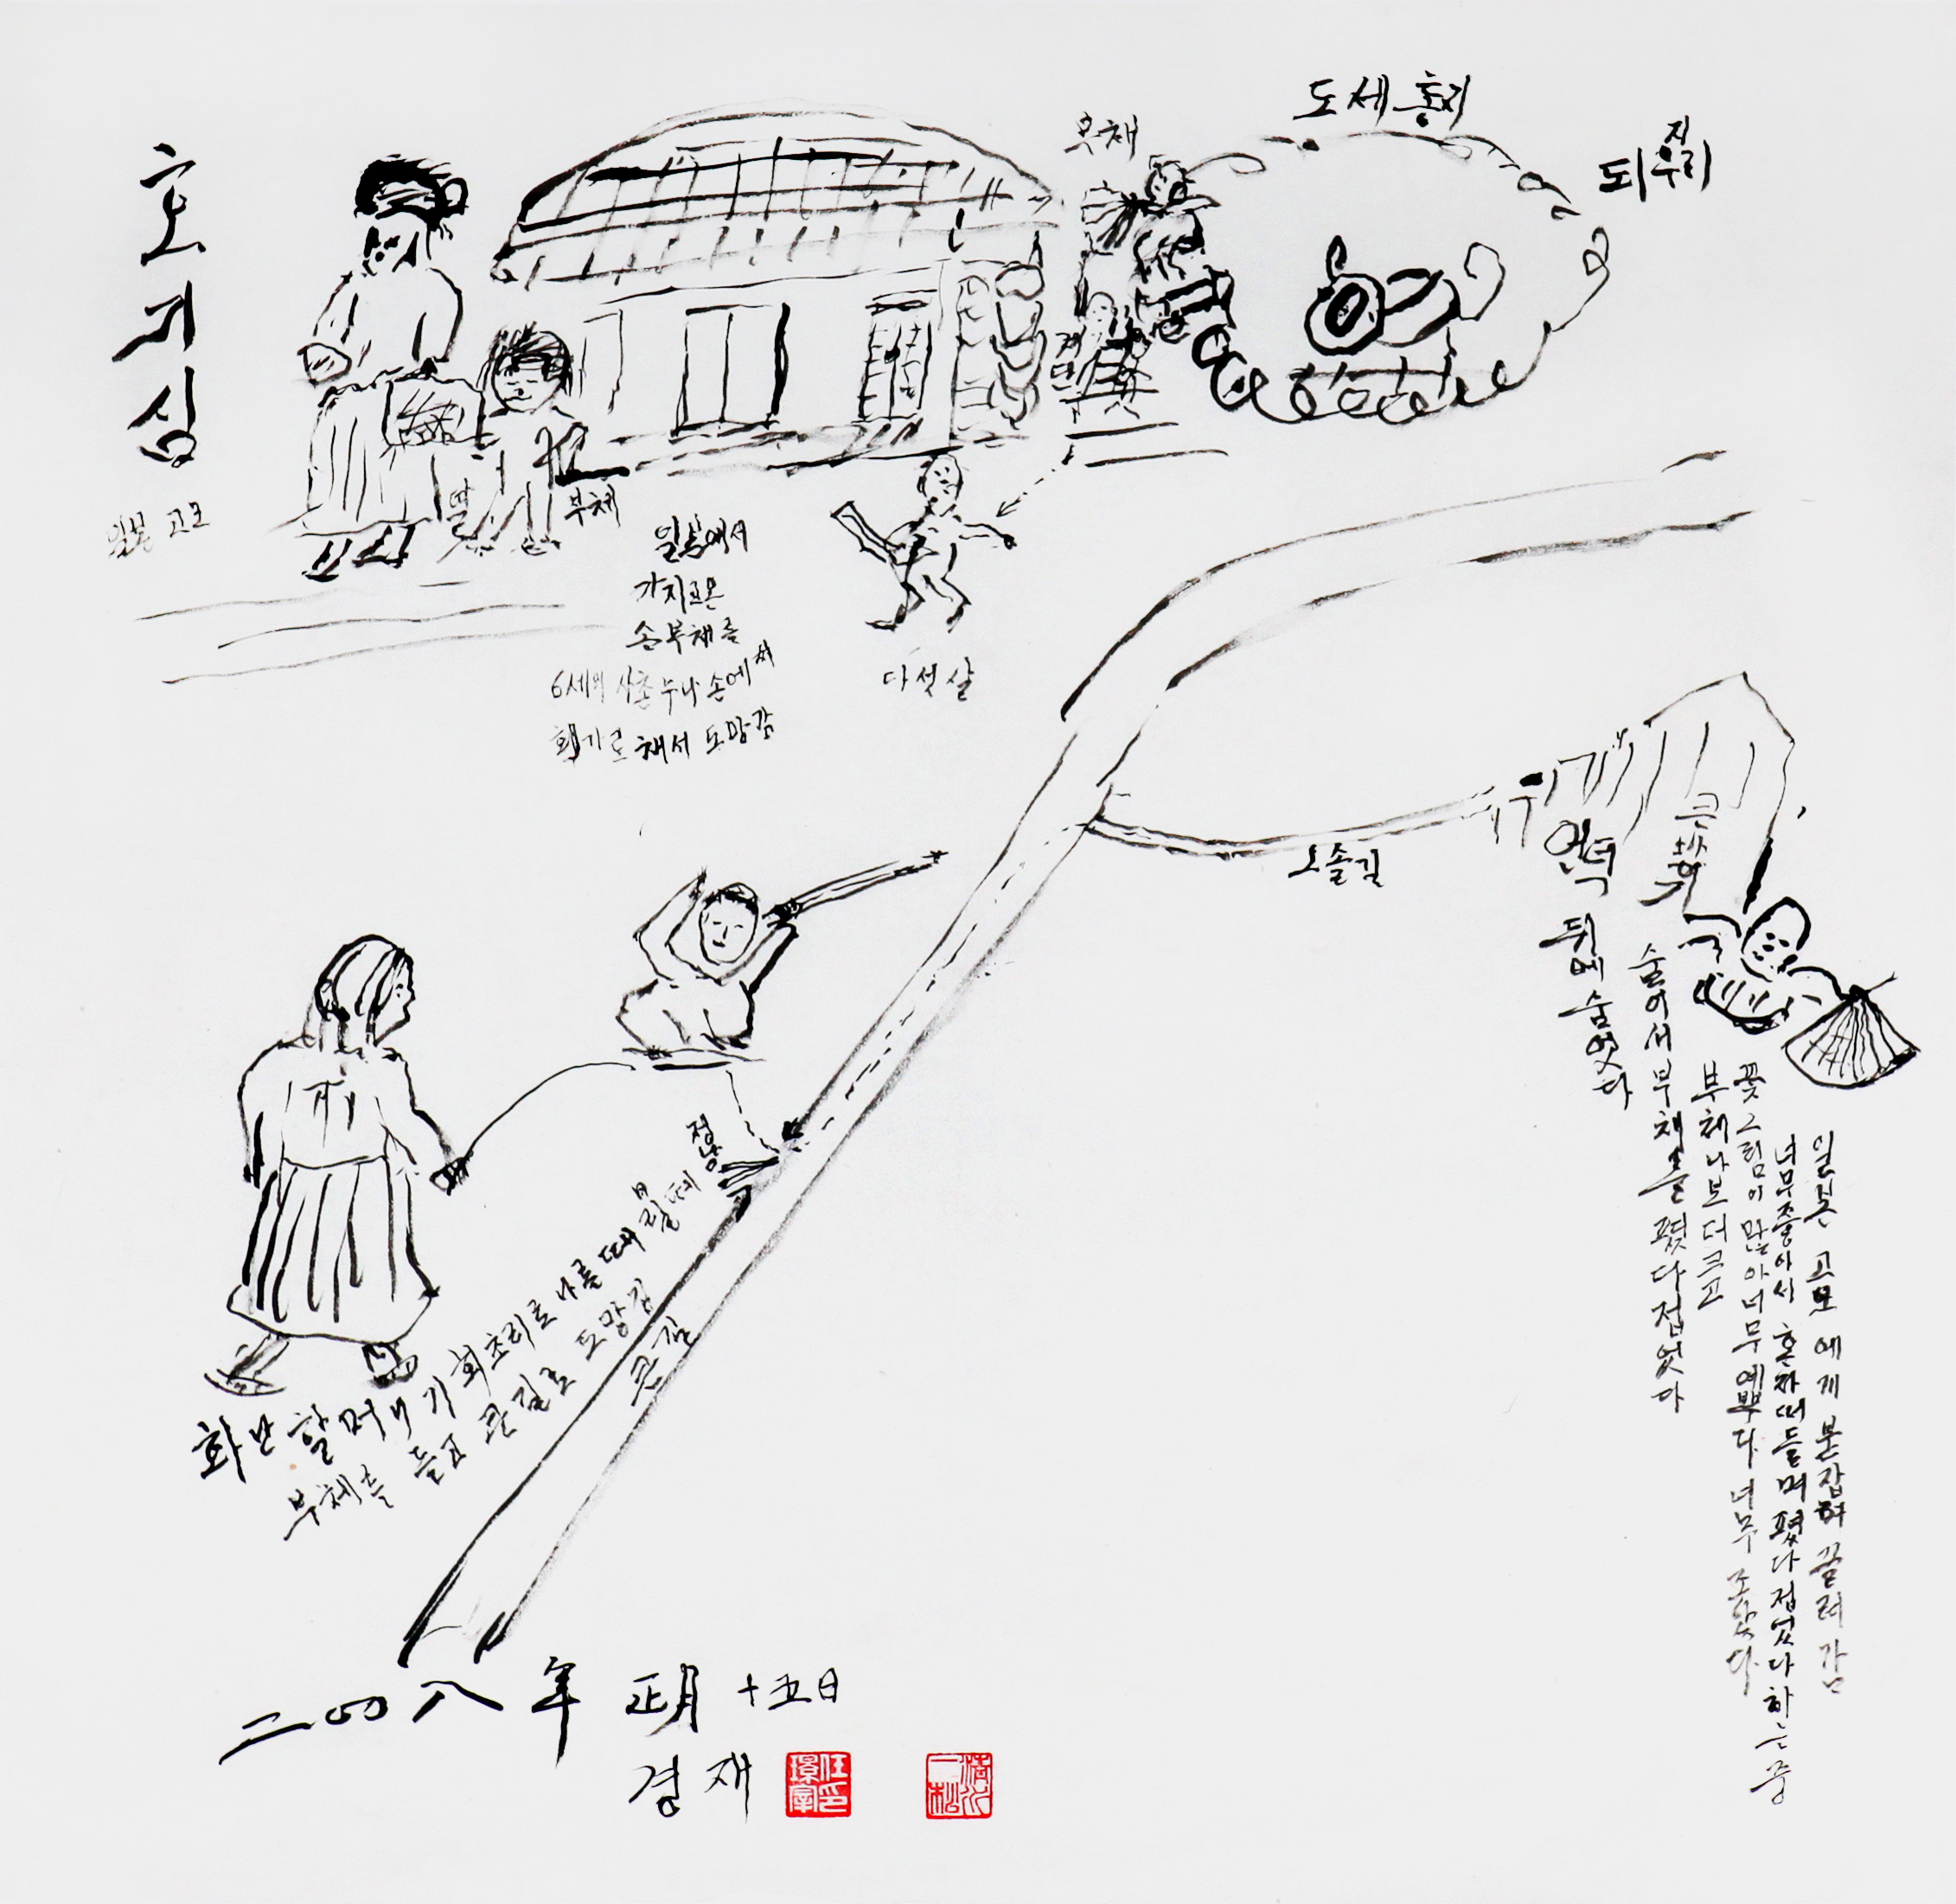 호기심
일본 고모
딸
부채
일본에서
가지고온
손부채를
6세의 사촌 누나 손에서
도망감
다섯살
부채
도세총지
오솔길
언덕
뒤에 숨었다
큰
숨어서 부채를 폈다 접었다
부채 나보더 크고
꽃그림이 많아 너무 예쁘다 너무 조았다
너무좋아서 흔자떠들며 폈다 접었다 하는중
일본 고모에게 붇잡혀 끌려감
화난 할머니가 회초리로 나를 때릴때
부채를 들고 큰길로 도망감
큰길
二四八年 正月 十五日
경재